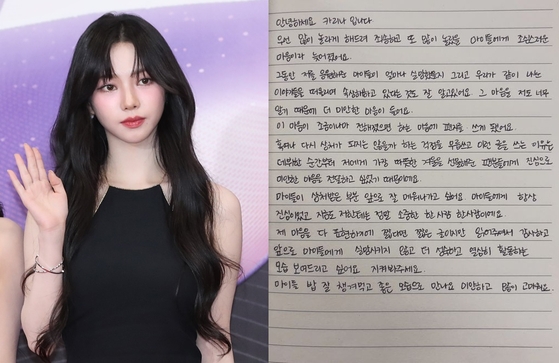 안녕하세요 카리나 입니다
우선 많이 놀라게 해드려 죄송하고 또 많이 놀랐을 마이들에게 조심스러운
마음이라 늦어졌어요.
그동안 저를 응원해준 마이들이 얼마나 실망했을지 그리고 우리가 같이 나눈
이야기들을 떠올리며 속상해하고 있다는 것도 잘 알고있어요. 그 마음을 저도 너무
알기 때문에 더 미안한 마음이 들어요.
이 마음이 조금이나마 전해졌으면 하는 마음에 편지를 쓰게 됐어요.
혹여나 다시 상처가 되지는 않을까 하는 걱정을 무릅쓰고 이런 글을 쓰는 이유는
데뷔한 순간부터 저에게 가장 따뜻한 겨울을 선물해준 팬분들에게 진심으로
미안한 마음을 전달하고 싶었기 때문이에요.
마이들이 상처받은 부분 앞으로 잘 메워나가고 싶어요. 마이들에게 항상
진심이었고 지금도 저한테는 정말 소중한 한 사람 한 사람이에요.
제 마음을 다 표현하기에 짧다면 짧은 글이지만 읽어주셔서 감사하고
앞으로 마이들에게 실망시키지 않고 더 성숙하고 열심히 활동하는
모습 보여드리고 싶어요. 지켜봐주세요.
마이들 밥 잘 챙겨먹고 좋은 모습으로 만나요 미안하고 많이 고마워요.